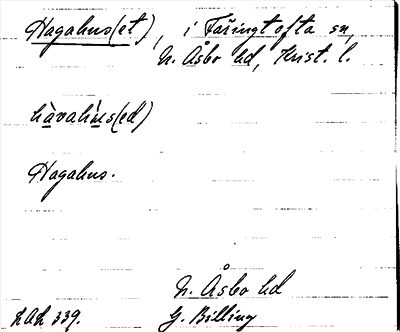 Hagahus(et), i Färingtofta sn,
N. Åsbo hd, Krist. l.
hàvahús(ed)
Hagahus.
N. Åsbo hd
LAL 339. G. Billing